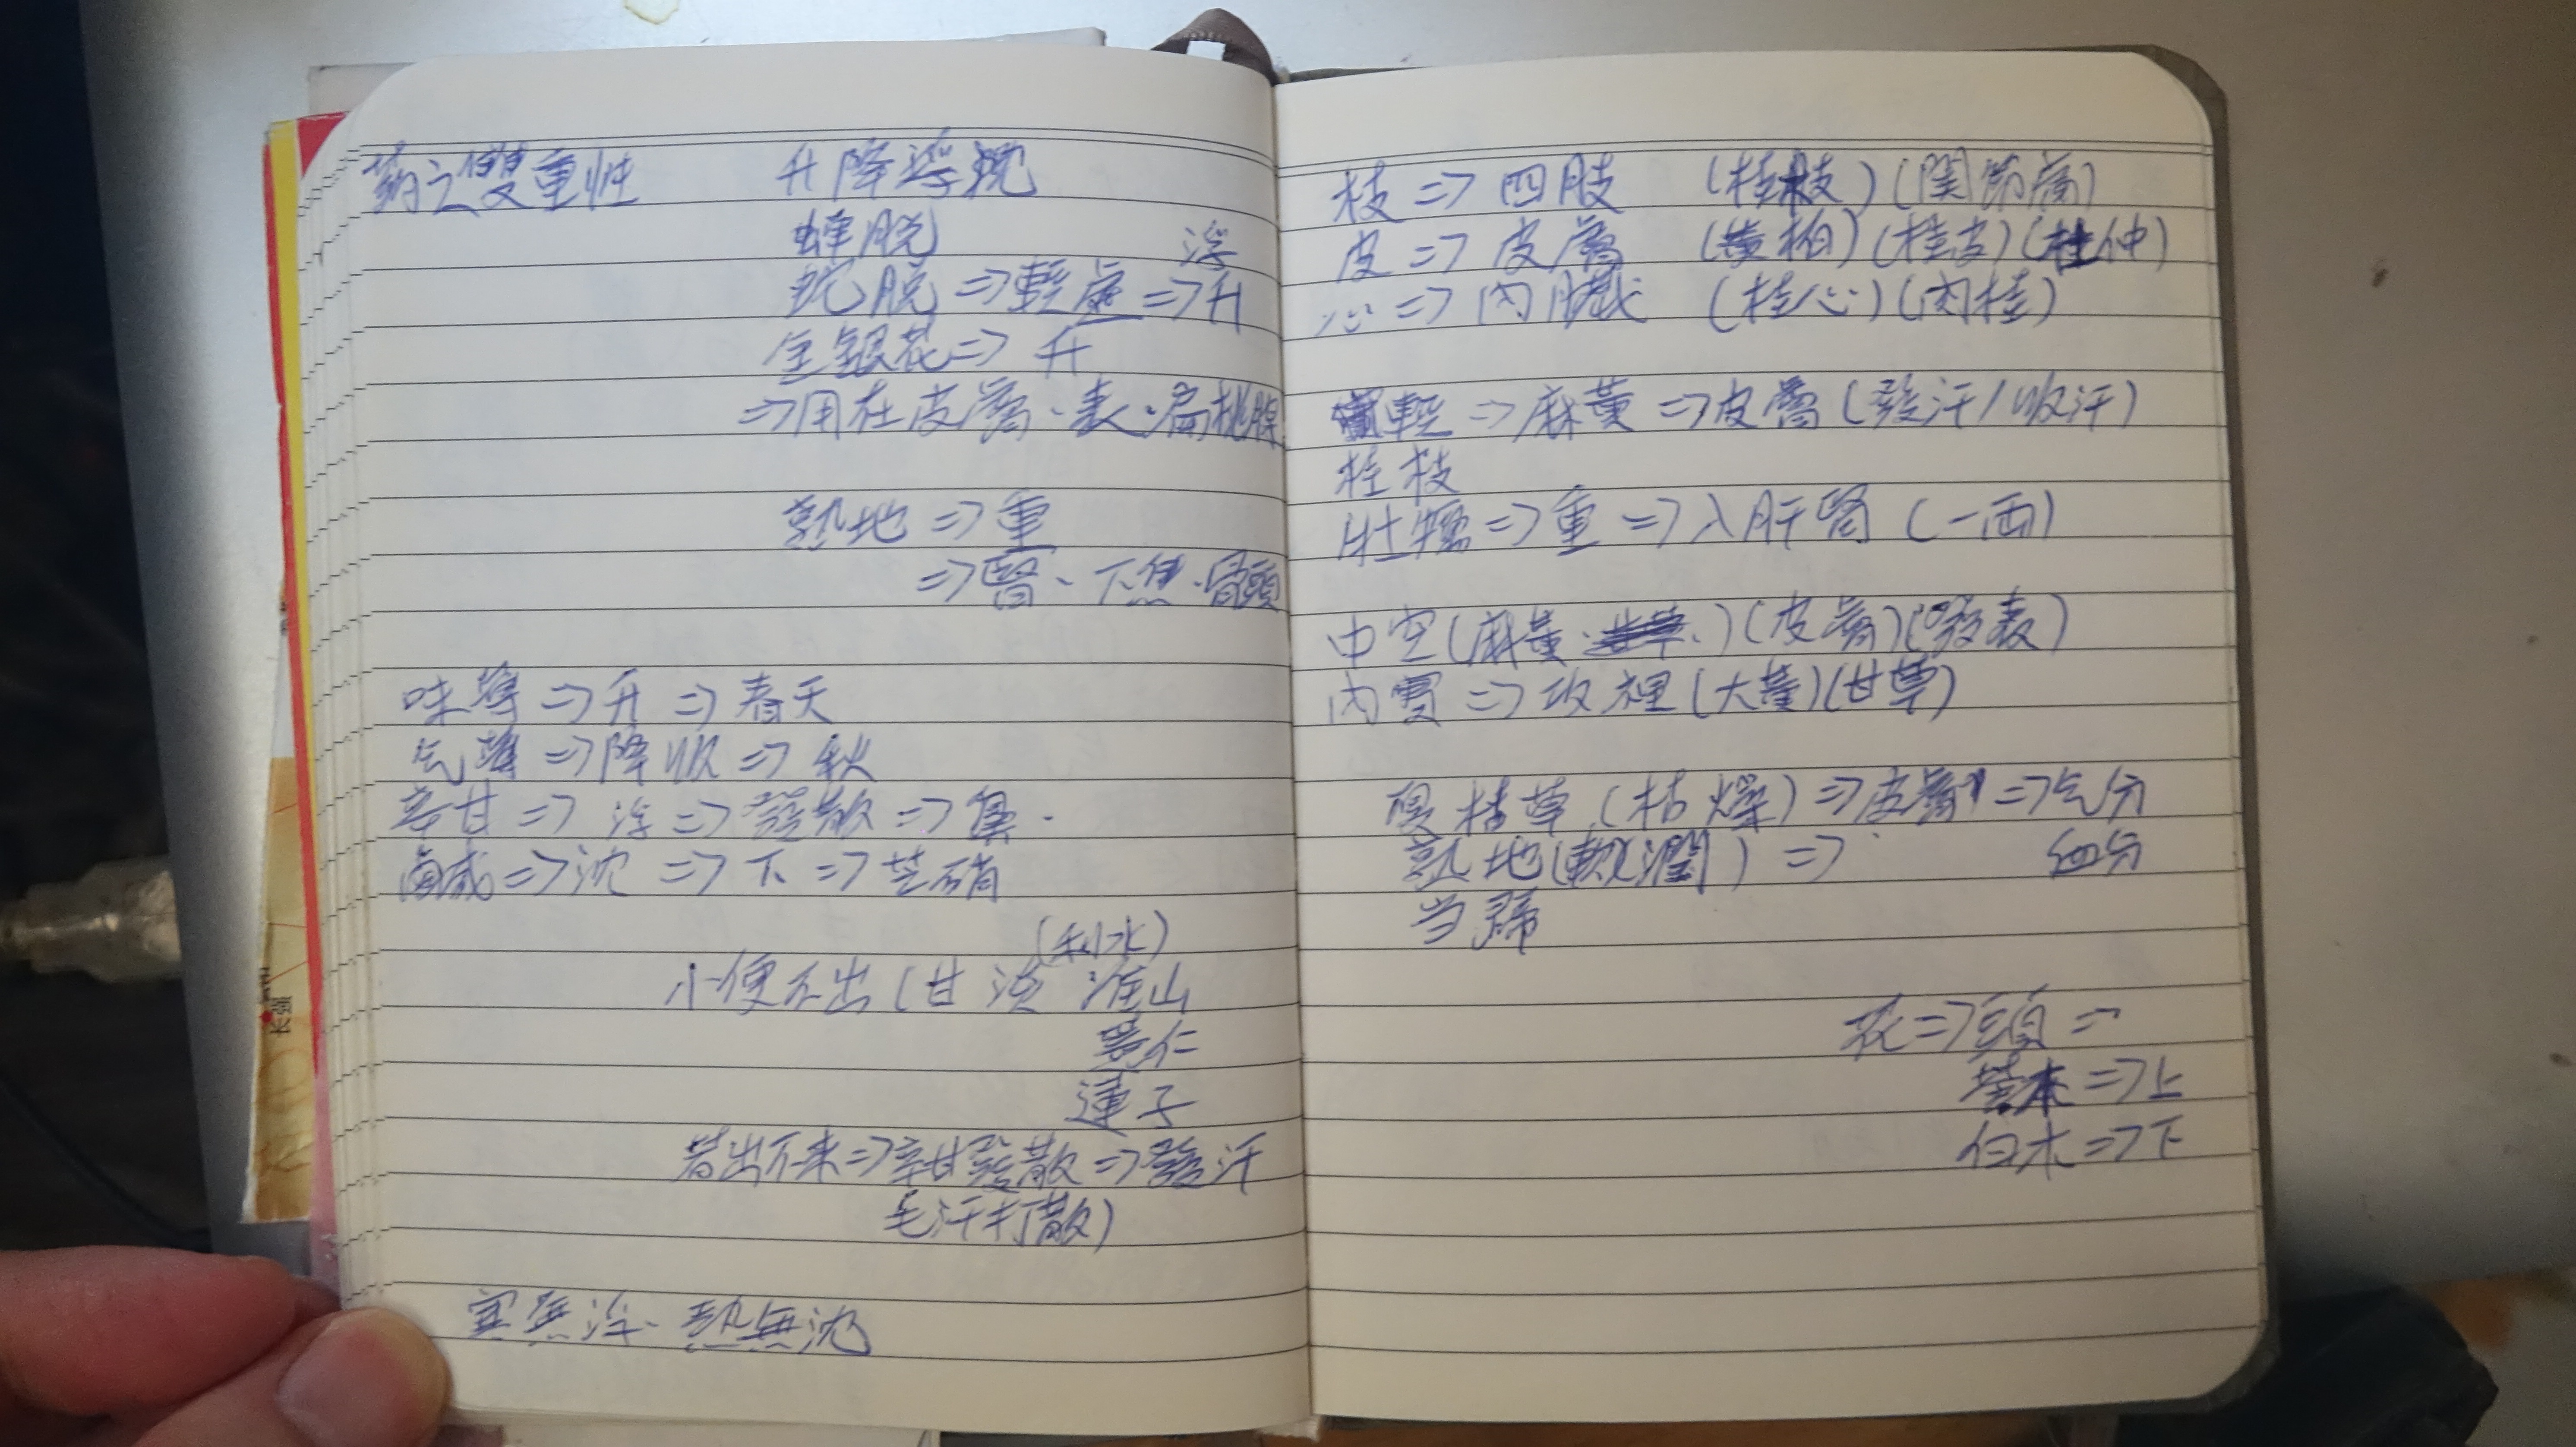 藥之雙重性 升降浮沈
蟬脫 浮
蛇脫 ⇒ 輕虛 ⇒ 升
金銀花 ⇒ 升
⇒ 用在皮膚、表、扁桃腺
熟地 ⇒ 重
⇒ 腎、下焦、骨頭
味薄 ⇒ 升 ⇒ 春天
气薄 ⇒ 降收 ⇒ 秋
辛甘 ⇒ 浮 ⇒ 發散 ⇒
鹹 ⇒ 沈 ⇒ 下 ⇒ 芒硝
(利水)
小便不出 (甘淡 淮山
薏仁
蓮子
若出不來 ⇒ 辛甘發散 ⇒ 發汗
毛汗打散)
寒無浮、熱無沈
长强
枝 ⇒ 四肢 (桂枝) (関節痛)
皮 ⇒ 皮膚 (黃柏) (桂皮) (杜仲)
心 ⇒ 內臟 (桂心) (肉桂)
輕 ⇒ 麻黃 ⇒ 皮膚 (發汗/收汗)
桂枝
牡蠣 ⇒ 重 ⇒ 入肝腎 (一兩)
中空 (麻黃、) (皮膚) (發表)
內實 ⇒ 攻裡 (大黃) (甘草)
夏枯草 (枯燥) ⇒ 皮膚 ⇒ 气分
熟地 (軟潤) ⇒ 血分
当歸
花 ⇒ 頭 ⇒
藁本 ⇒ 上
白朮 ⇒ 下